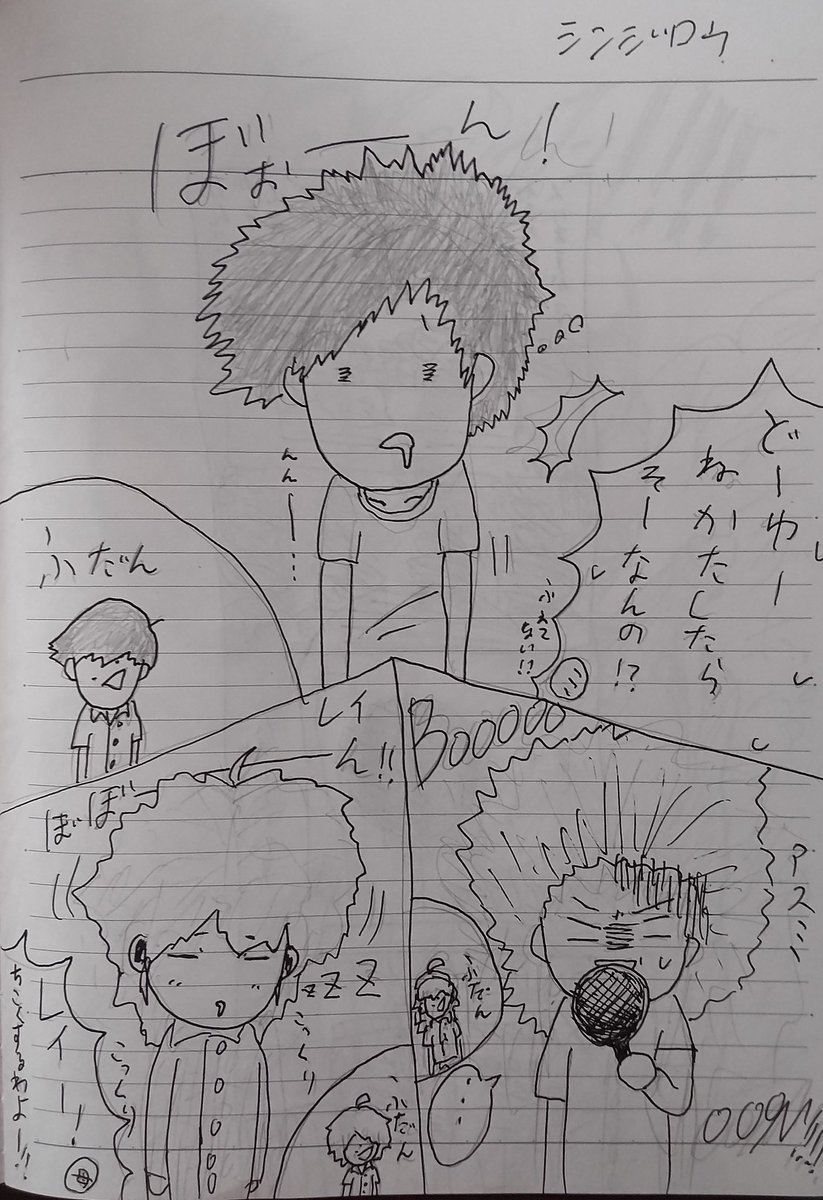 シンジロウ
ぼぉーん!
んんー…
どーゆー
ねかたしたら
そーなんの!?
ふだん
レイ
ぼぼーん!!
zzZ
こっくり
こっくり
レイー!
ちこくするわよー!!
母
ふだん
Booooo
アスミ
ふだん